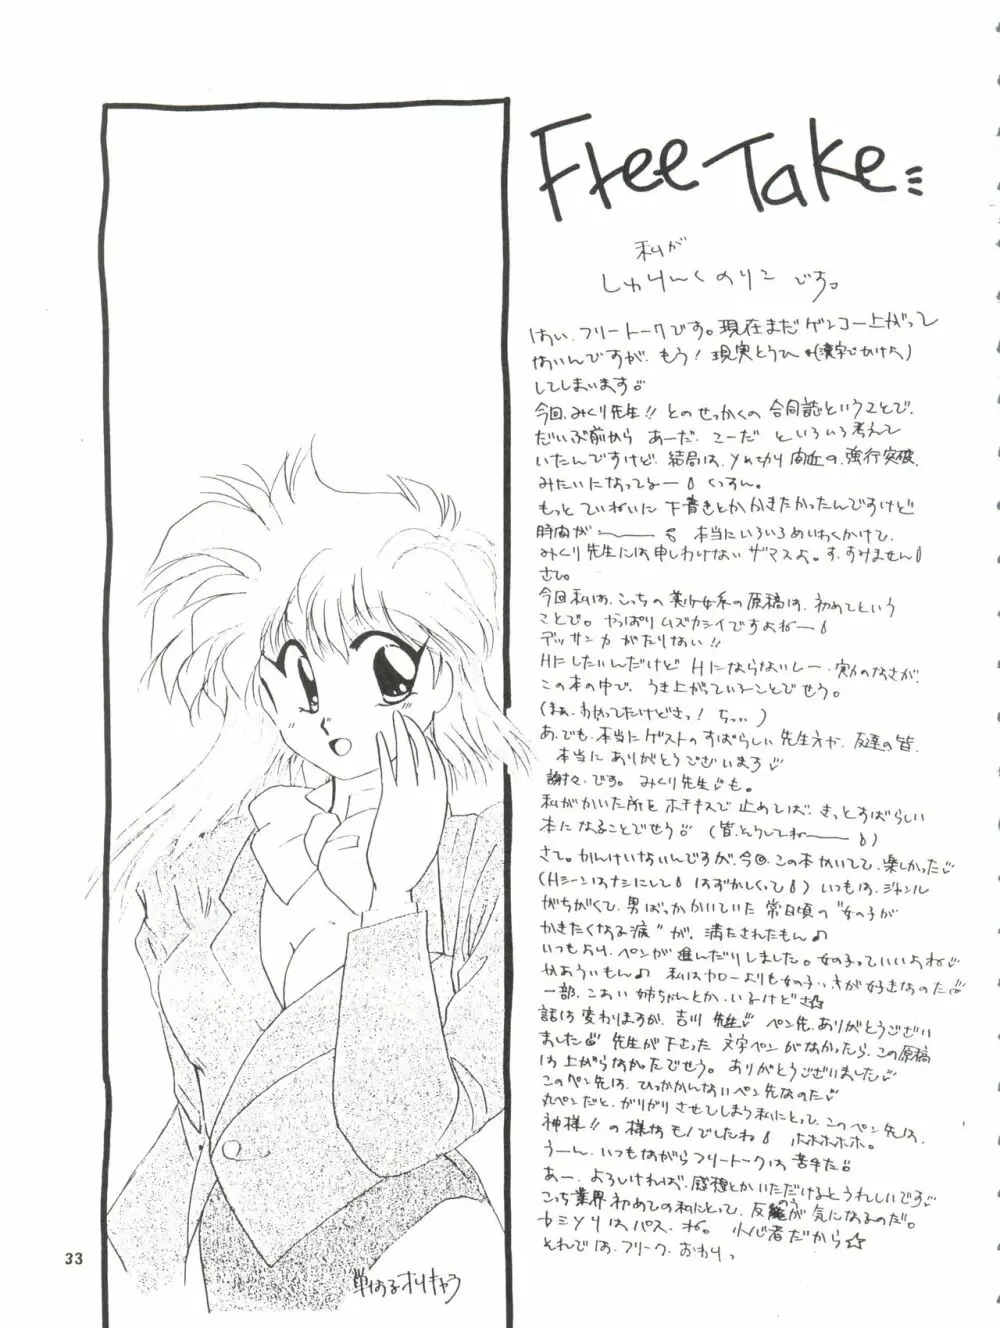 Free Take
私が
しゅりんくのりこ です。
はい、フリートークです。現在まだゲンコー上がって
ないんですが、もう！現実とうひ(漢字でかけよ)
してしまいます
今回、みくり先生!! とのせっかくの 合同誌ということで、
だいぶ前から あーだ、こーだ といろいろ考えて
いたんですけど、結局は、〆切り間近の、強行突破、
みたいになってるー くっすん。
もっとていねいに 下書きとかかきたかったんですけど
時間が 本当にいろいろめいわくかけて、
みくり先生には申しわけないザマスよ。す、すみません
さて。
今回私は、こっちの美少女系の原稿は、初めてという
ことで。やっぱりムズカシイですよねー
デッサン力がたりない!!
Hにしたいんだけど Hにならないしー、実力のなさが、
この本の中で、うき上がっていることでせう。
(まぁ、わかってたけどさっ！ ちっ…)
あ、でも、本当にゲストのすばらしい先生方や、友達の皆、
本当にありがとうございます♡
謝々、です。みくり先生♡も。
私がかいた所をホチキスで止めてしば、きっとすばらしい
本になることでせう (皆、どうしてねー)
さて。かんけいないんですが、今回、この本かいてて、楽しかった♡
(Hシーンはナシにして はずかしくって) いつもは、ジャンル
がちがくて、男ばっかかいていた 常日頃の "女の子が
かきたくなる病" が、満たされたもん♪
いつもより、ペンが進んだりしました。女の子っていいよねぇ♡
かぁういもん♪ 私はヤローよりも女の子の方が好きなのだ♡
一部、こあい姉ちゃんとか、いるけどさ☆
話は変わりますが、吉川先生♡ ペン先、ありがとうござい
ました 先生が下さった 文字ペンがなかったら、この原稿
は上がらなかったでせう。ありがとうございました♡
このペン先は、ひっかかんないペン先なのだ♡
丸ペンだと、がりがりさせてしまう私にとって、このペン先は、
神様!! の様なモノでしたね ホホホホホ。
うーん、いつもながらフリートークは苦手だ
あー、よろしければ、感想とかいただけるとうれしいです♡
こっち業界初めての私にとって、反能(のう)が気になるのだ。
カミソリはパス、ね。 小心者だから☆
それでは、フリーク、おわりっ
単なるオリキャラ
33